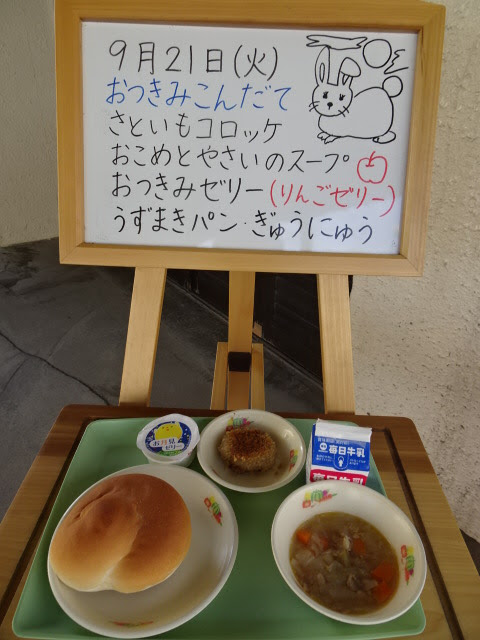 9月21日(火)
おつきみこんだて
さといもコロッケ
おこめとやさいのスープ
おつきみゼリー(りんごゼリー)
うずまきパン・ぎゅうにゅう
お月見
ゼリー
毎日牛乳
毎日牛乳